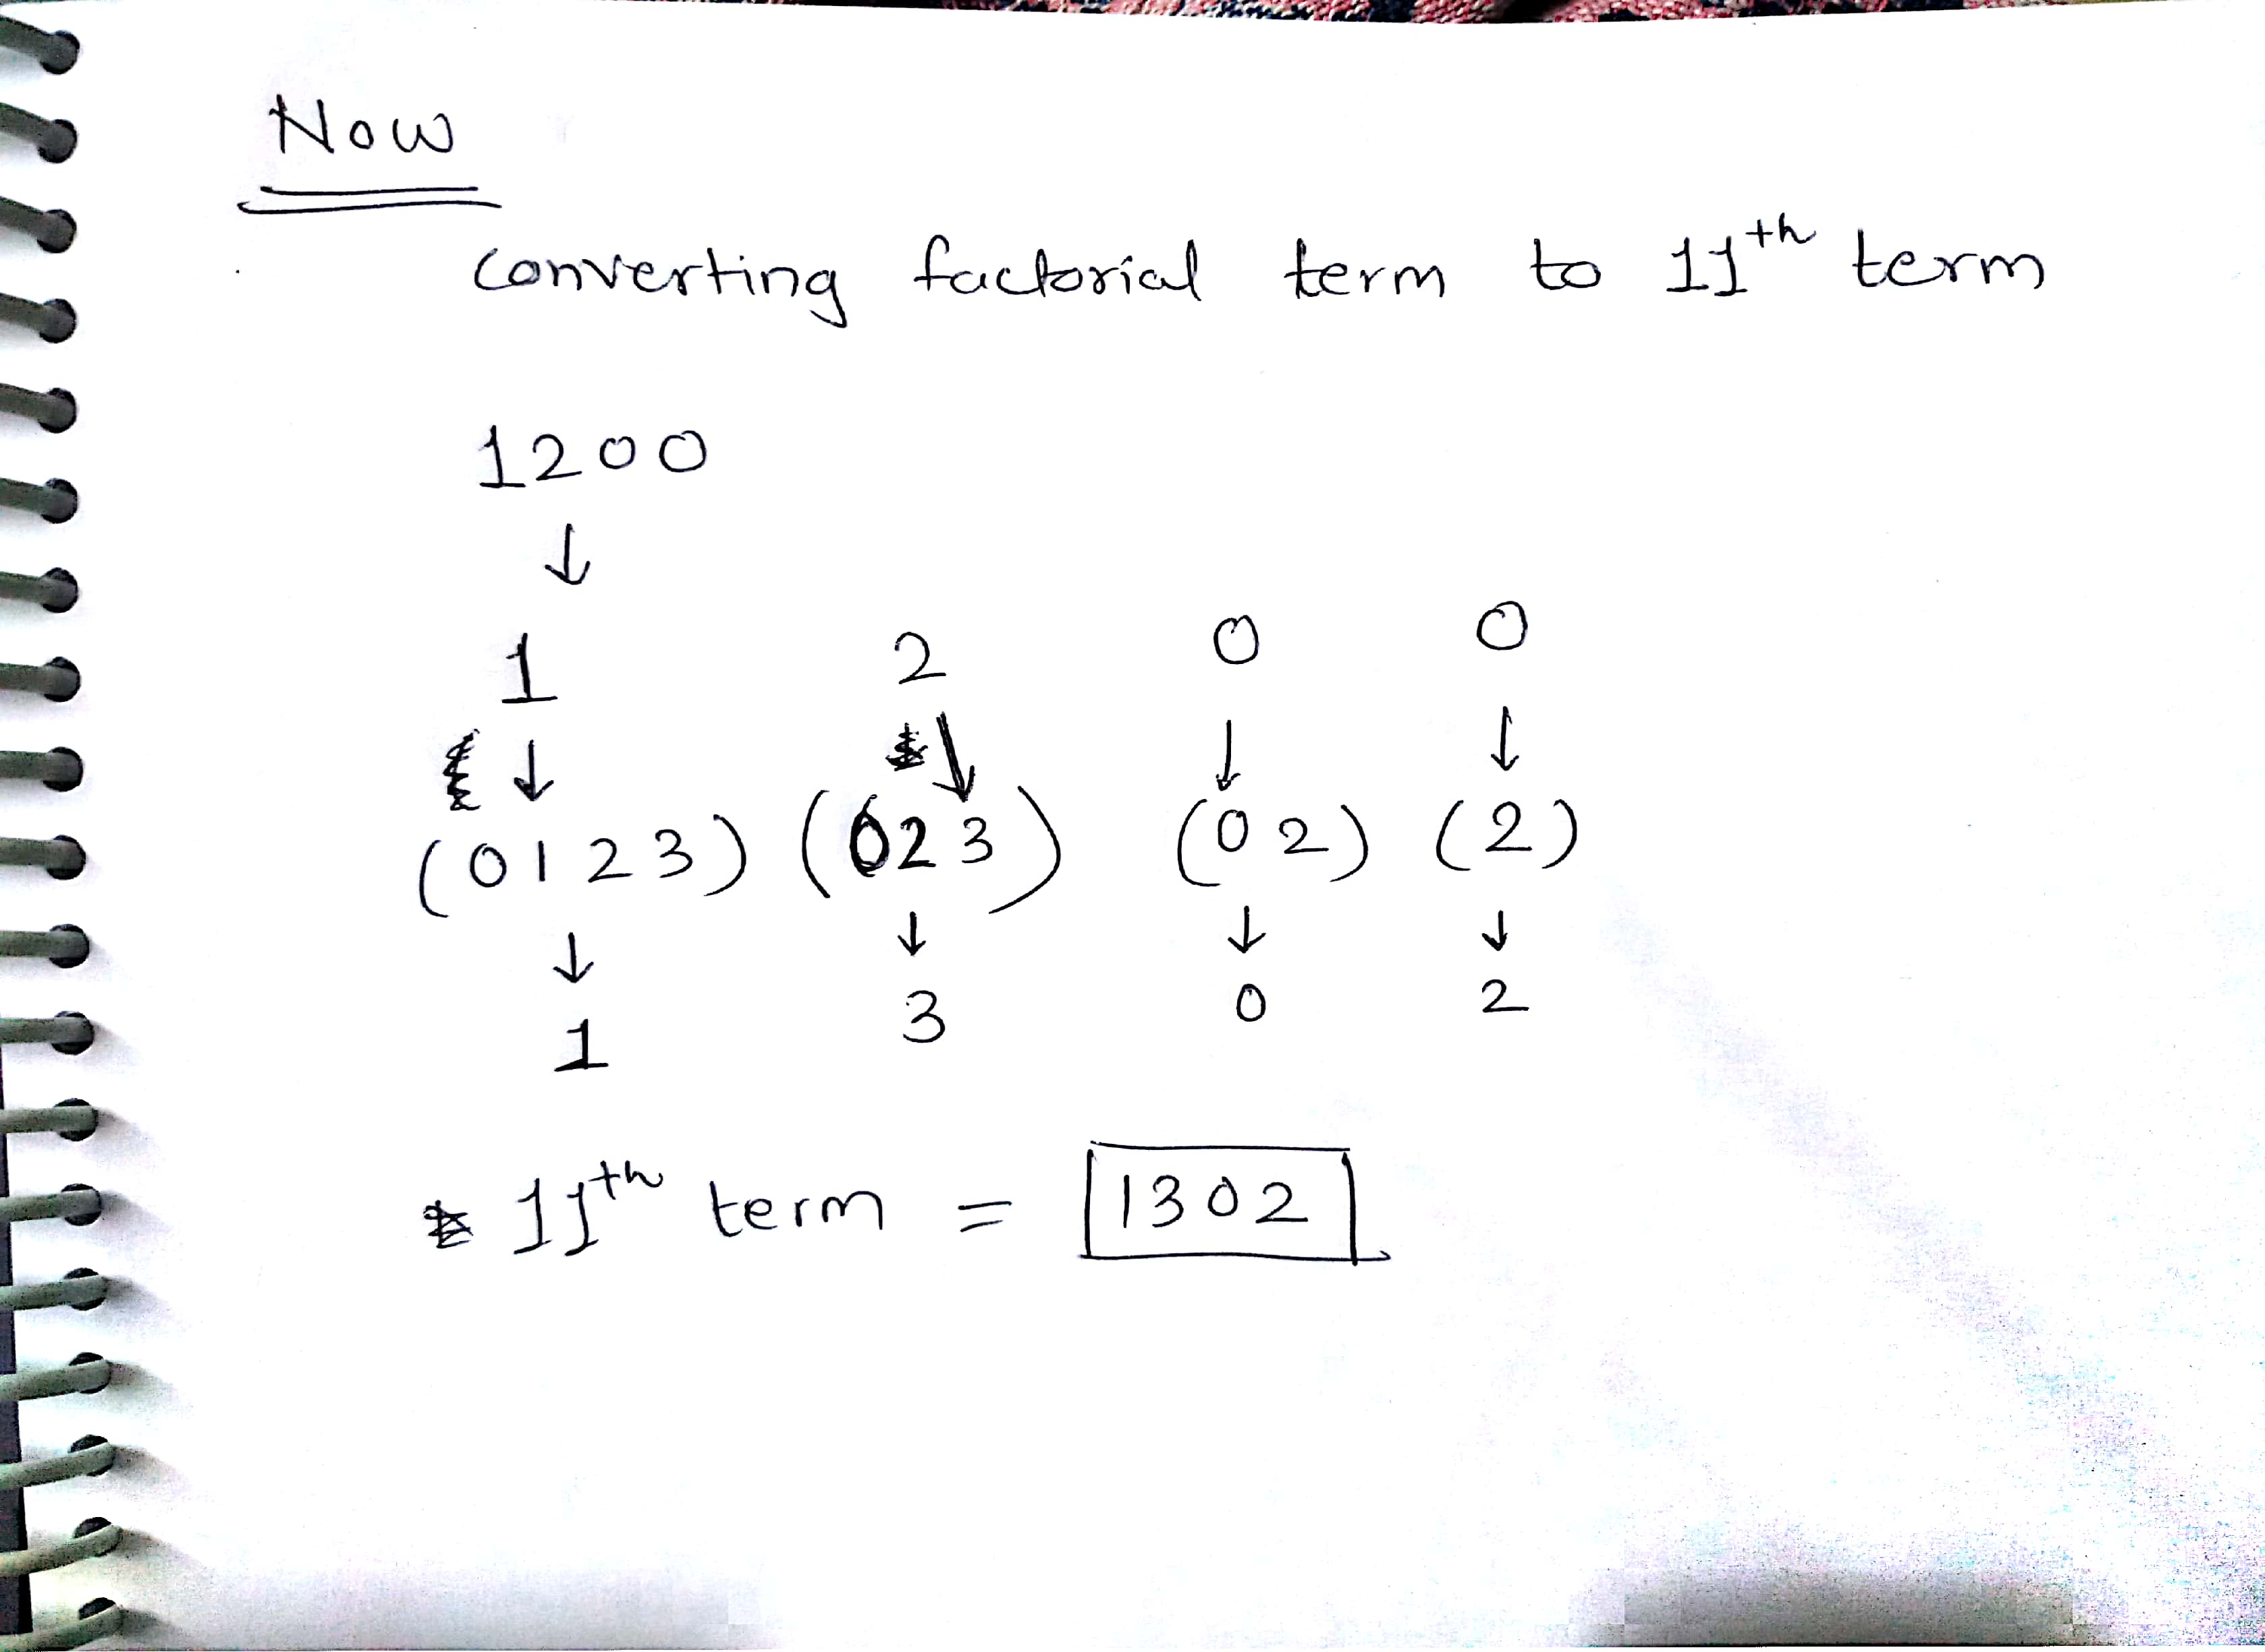 Now
converting factorial term to 11th term
1200
↓
1 2 0 0
↓ ↓ ↓ ↓
(0123) (023) (02) (2)
↓ ↓ ↓ ↓
1 3 0 2
11th term = 1302